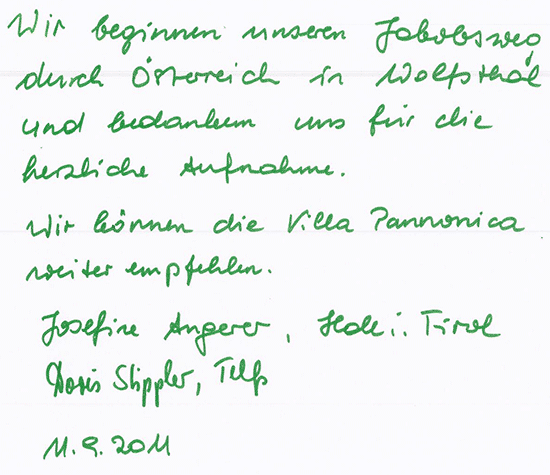 Wir beginnen unseren Jakobsweg
durch Österreich in Wolfsthal
und bedanken uns für die
herzliche Aufnahme.
Wir können die Villa Pannonica
weiter empfehlen.
Josefine Angerer, i. Tirol
Doris Stippler, Telfs
11.9.2011